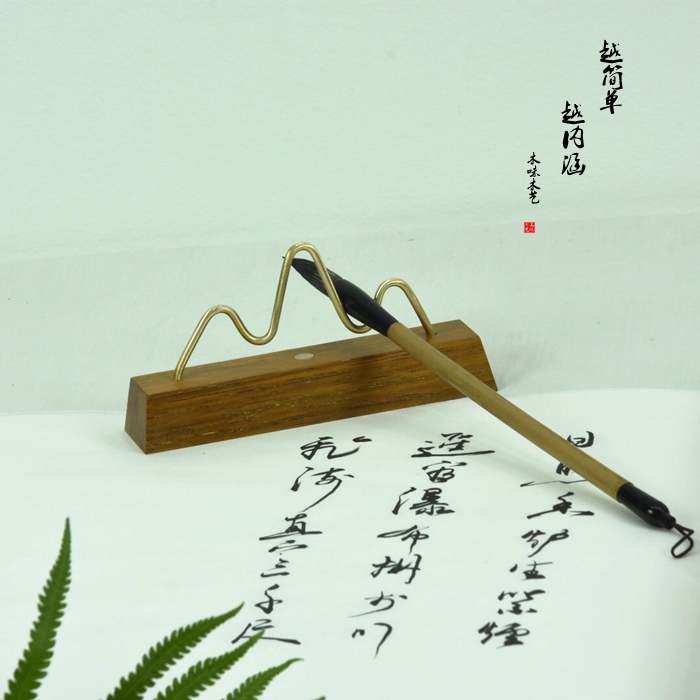 越简单
越内涵
木味木艺
日照香炉生紫煙
遥看瀑布掛前川
飞流直下三千尺